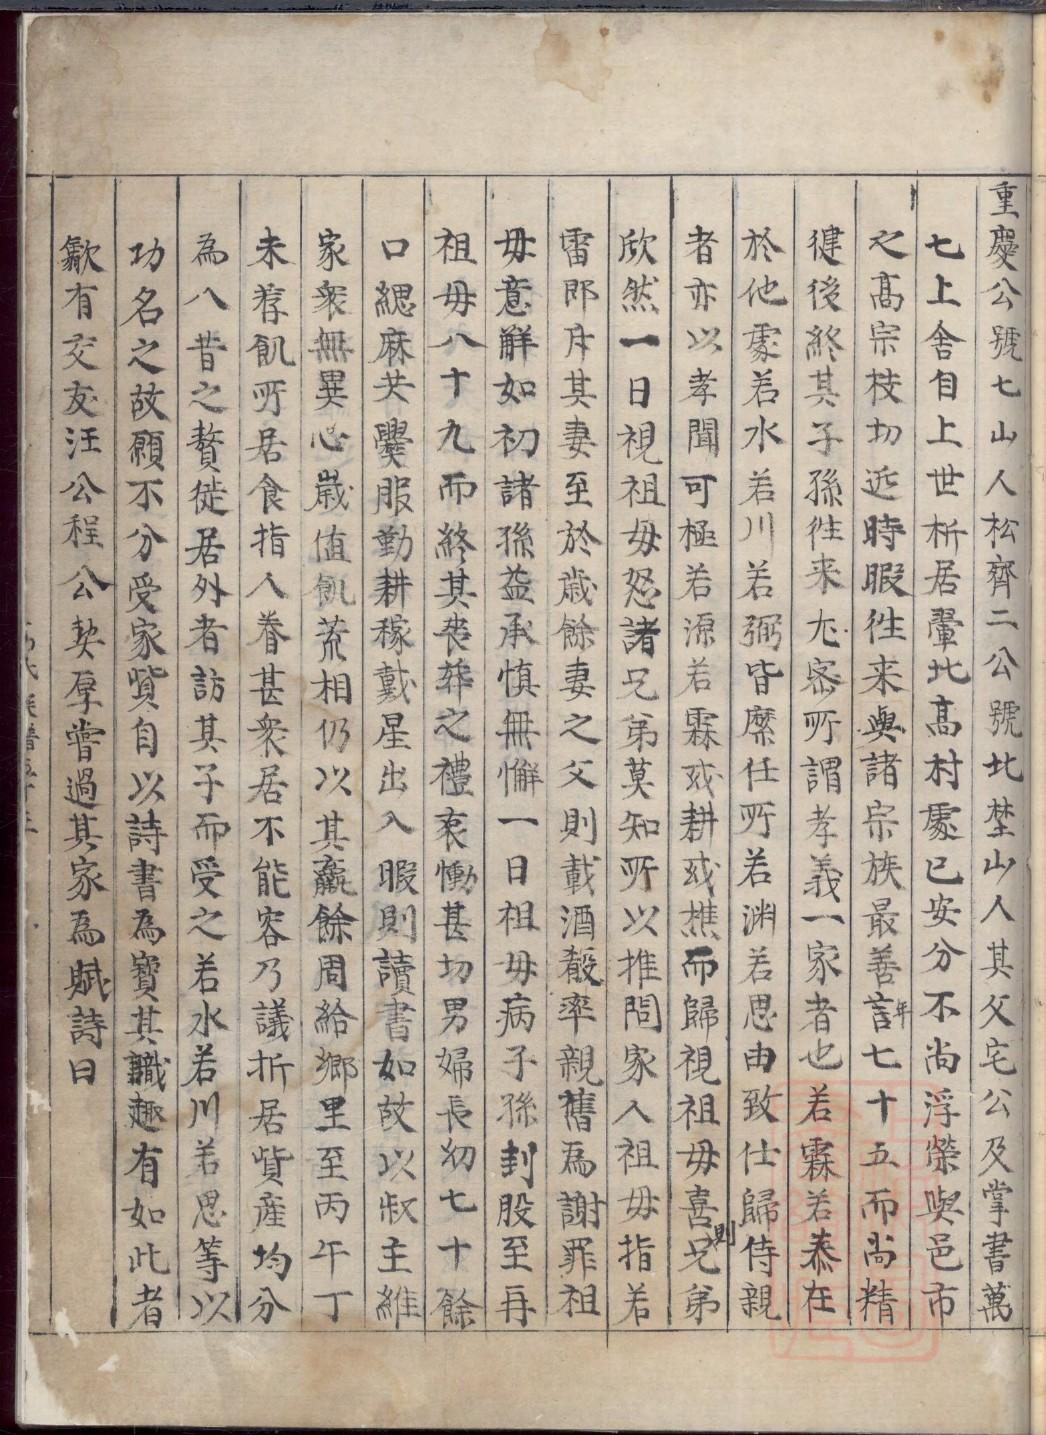 重慶公號七山人松齊二公號北埜山人其父宅公及掌書萬
七上舍自上世析居翬北高村處已安分不尚浮榮與邑市
之高宗枝切近時暇徃来與諸宗族最善言年七十五而尚精
健後終其子孫徃来尤密所謂孝義一家者也若霖若泰在
於他處若水若川若弼皆縻任所若渊若思由致仕歸侍親
者亦以孝聞可極若源若霖或耕或樵而歸視祖毋喜則兄弟
欣然一日視祖毋怒諸兄弟莫知所以推問家人祖毋指若
雷即斥其妻至於歲餘妻之父則載酒殽率親舊為謝罪祖
毋意觧如初諸孫益承慎無懈一日祖毋病子孫刲股至再
祖毋八十九而終其丧葬之禮哀慟甚切男婦長幼七十餘
口緦麻共爨服勤耕稼戴星出入暇則讀書如故以叔主維
家衆無異心歲值飢荒相仍以其贏餘周給鄉里至丙午丁
未荐飢所居食指人眷甚衆居不能容乃議折居貲産均分
為八昔之贅徙居外者訪其子而受之若水若川若思等以
功名之故願不分受家貲自以詩書為寳其識趣有如此者
歙有交友汪公程公契厚嘗過其家為賦詩曰